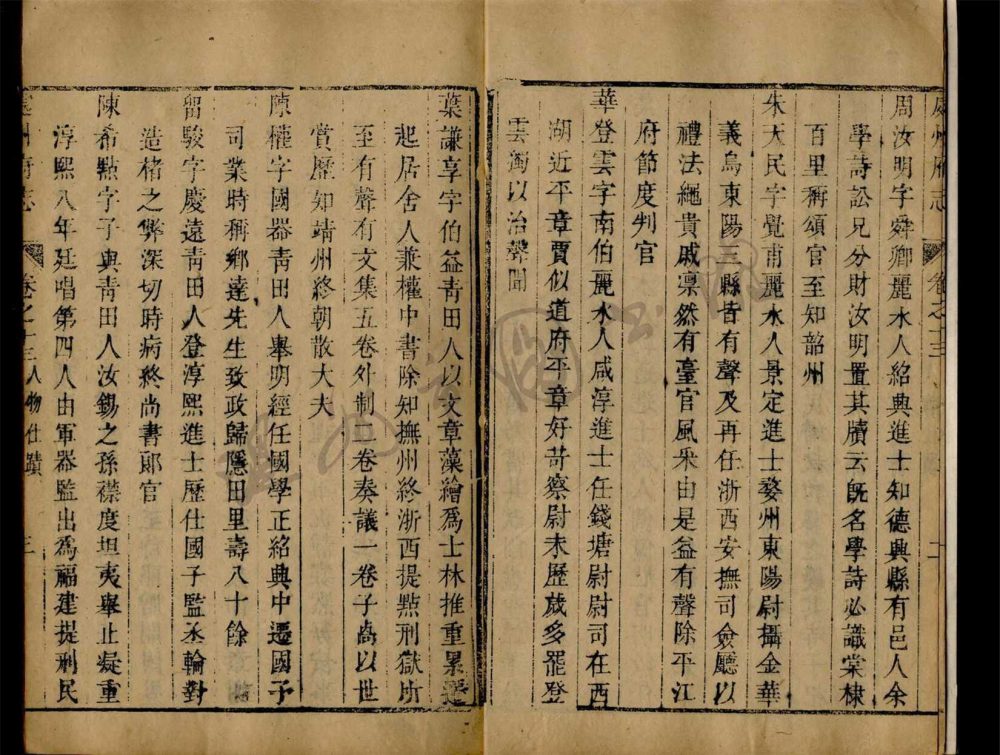 處州府志
卷之十三
周汝明字舜卿麗水人紹興進士知德興縣有邑人余
學詩訟兄分財汝明置其牘云旣名學詩必識棠棣
百里稱頌官至知韶州
朱大民字覺甫麗水人景定進士婺州東陽尉攝金華
義烏東陽三縣皆有聲及再任浙西安撫司僉廳以
禮法繩貴戚凛然有臺官風采由是益有聲除平江
府節度判官
華登雲字南伯麗水人咸淳進士任錢塘尉尉司在西
湖近平章賈似道府平章好苛察尉未歷歲多罷登
雲獨以治聲聞
葉謙享字伯益靑田人以文章藻繪爲士林推重累遷
起居舍人兼權中書除知撫州終浙西提點刑獄所
至有聲有文集五卷外制二卷奏議一卷子卨以世
賞歷知靖州終朝散大夫
陳權字國器靑田人舉明經任國學正紹興中遷國子
司業時稱鄉達先生致政歸隱田里壽八十餘
留駿字慶遠靑田人登淳熙進士歷仕國子監丞輪對
造楮之弊深切時病終尚書郞官
陳希點字子與靑田人汝錫之孫襟度坦夷舉止凝重
淳熙八年廷唱第四人由軍器監出爲福建提刑民
處州府志
卷之十三人物仕蹟
三